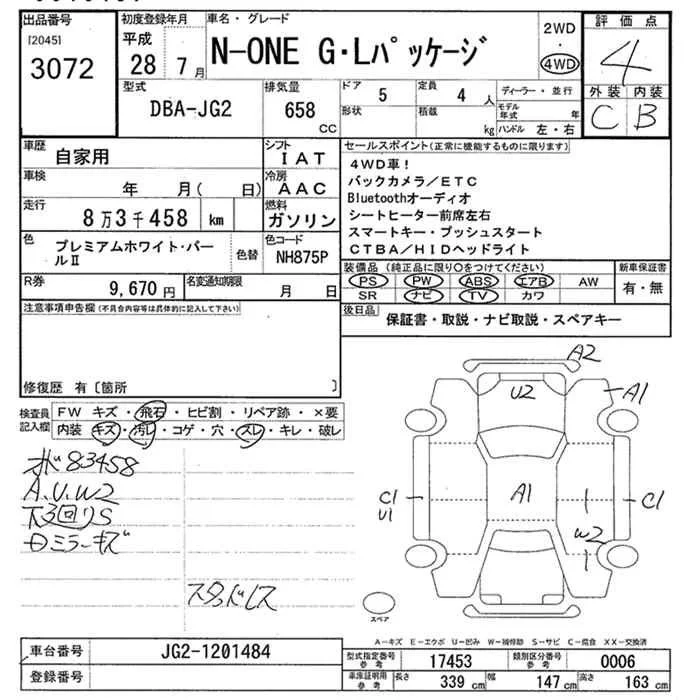 出品番号
[2045]
3072
初度登録年月
平成
28年7月
車名・グレード
N-ONE G・Lパッケージ
2WD
・
4WD
評価点
4
外装 内装
C B
型式
DBA-JG2
排気量
658
CC
ドア
5
定員
4人
形状
積載
kg
ディーラー・並行
モデル年式 年
ハンドル 左・右
車歴
自家用
シフト
IAT
車検
年 月( 日)
冷房
AAC
走行
8万3千458 km
燃料
ガソリン
色
プレミアムホワイト・パールⅡ
色替
色コード
NH875P
R券
9,670円
名変通知期限
月 日
セールスポイント(正常に機能するものに限ります)
4WD車!
バックカメラ/ETC
Bluetoothオーディオ
シートヒーター前席左右
スマートキー・プッシュスタート
CTBA/HIDヘッドライト
装備品(純正品に限り○をつけてください)
PS PW ABS エアB AW
SR ナビ TV カワ
新車保証書
有・無
後日品
保証書・取説・ナビ取説・スペアキー
注意事項申告欄(不具合内容等は具体的に記入して下さい)
修復歴 有〔箇所 〕
検査員記入欄
FW キズ・飛石・ヒビ割・リペア跡・×要
内装 キズ・汚レ・コゲ・穴・スレ・キレ・破レ
ホ゛83458
A.U.W2
下回りS
ミラーキズ
スタッドレス
A2
U2
A1
C1
U1
A1
C1
W2
スペア
A-キズ E-エクボ U-凹み W-補修跡 S-サビ C-腐食 XX-交換済
車台番号
JG2-1201484
登録番号
型式指定番号
参考
17453
類別区分番号
参考
0006
車庫証明用
参考
長さ
339 cm
幅
147 cm
高さ
163 cm